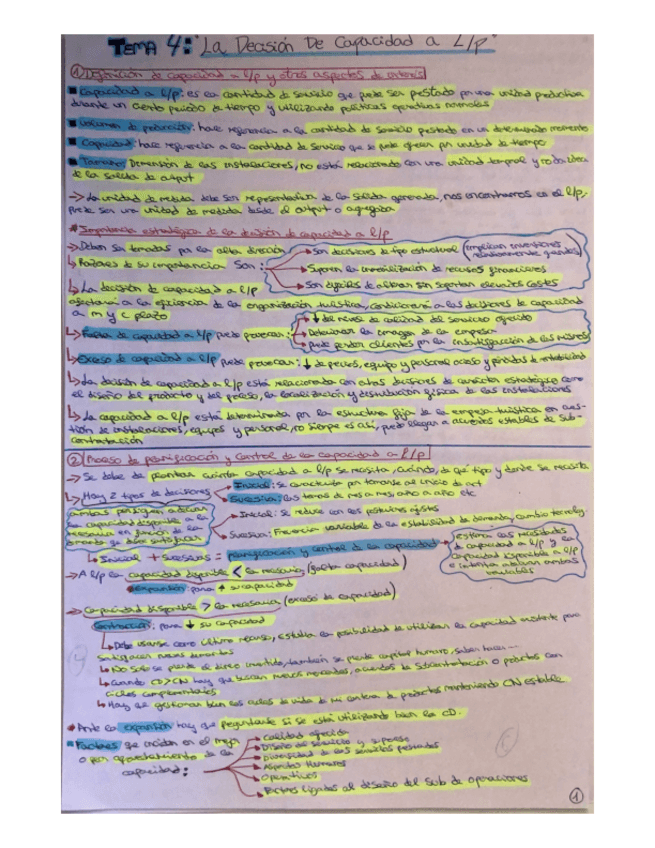 TEMA 4: "La Decisión De Capacidad a L/p"
① Definición de capacidad a L/p y otros aspectos de interés
Capacidad a L/p: es la cantidad de servicio que puede ser prestado por una unidad productiva
durante un cierto periodo de tiempo y utilizando políticas operativas normales
Volumen de producción: hace referencia a la cantidad de servicio prestado en un determinado momento
Capacidad: hace referencia a la cantidad de servicio que se puede ofrecer por unidad de tiempo
Tamaño: Dimensión de las instalaciones, no está relacionado con una unidad temporal y no da idea
de la salida de output
→ La unidad de medida debe ser representativa de la salida generada, nos encontramos en el l/p,
puede ser una unidad de medida desde el output o agregada
* Importancia estratégica de la decisión de capacidad a l/p
→ Deben ser tomadas por la alta dirección
↳ Razones de su importancia son:
→ Son decisiones de tipo estructural (implican inversiones
relativamente grandes)
→ Suponen la inmovilización de recursos financieros
→ Son difíciles de alterar sin soportar elevados costes
↳ La decisión de capacidad a l/p
afectarán a la eficiencia de la organización turística, condicionará a las decisiones de capacidad
a m y c plazo
↳ Falta de capacidad a l/p puede provocar:
→ ↓ del nivel de calidad del servicio ofrecido
→ Deteriorar la imagen de la empresa
→ puede perder clientes por la insatisfacción de los mismos
↳ Exceso de capacidad a l/p puede provocar: ↓ de precios, equipo y personal ocioso y pérdidas de rentabilidad
↳ La decisión de capacidad a l/p está relacionada con otras decisiones de carácter estratégico como
el diseño del producto y del proceso, la localización y distribución física de las instalaciones
↳ La capacidad a l/p está determinada por la estructura fija de la empresa turística en cues-
tión de instalaciones, equipos y personal, no siempre es así, puede llegar a acuerdos estables de sub-
contratación
② Proceso de planificación y control de la capacidad a l/p
→ Se debe de plantear cuánta capacidad a l/p se necesita, cuándo, de qué tipo y donde se necesita
↳ Hay 2 tipos de decisiones
→ Inicial: se caracteriza por tomarse al inicio de act
→ Sucesiva: las tomas de mes a mes, año a año etc
ambas persiguen adecuar
la capacidad disponible a la
necesaria en función de la
demanda se desea satisfacer
→ Inicial: se reduce con los posteriores ajustes
→ Sucesiva: Frecuencia variable de la estabilidad de demanda, cambio tecnolg.
↳ Inicial + sucesivas = planificación y control de la capacidad →
estima las necesidades
de capacidad a l/p y la
capacidad disponible a l/p
e intenta adecuar ambas
variables
→ A l/p la capacidad disponible < la necesaria (falta capacidad)
expansión para ↑ su capacidad
→ Capacidad disponible > la necesaria (exceso de capacidad)
Contracción: para ↓ su capacidad
↳ Debe usarse como último recurso, estudia la posibilidad de utilizar la capacidad existente para
satisfacer nuevas demandas
↳ No solo se pierde el dinero invertido, también se pierde capital humano, saber hacer...
↳ Cuando CD>CN hay que buscar nuevos mercados, acuerdos de subcontratación o productos con
ciclos complementarios
↳ Hay que gestionar bien los ciclos de vida de mi cartera de productos manteniendo CN estable.
* Ante la expansión hay que preguntarse si se está utilizando bien la CD.
* Factores que inciden en el mejor
o peor aprovechamiento de la
capacidad:
→ Calidad ofrecida
→ Diseño del servicio y proceso
→ Diversidad de los servicios prestados
→ Aspectos Humanos
→ Operativos
→ Factores ligados al diseño del Sub de operaciones
①